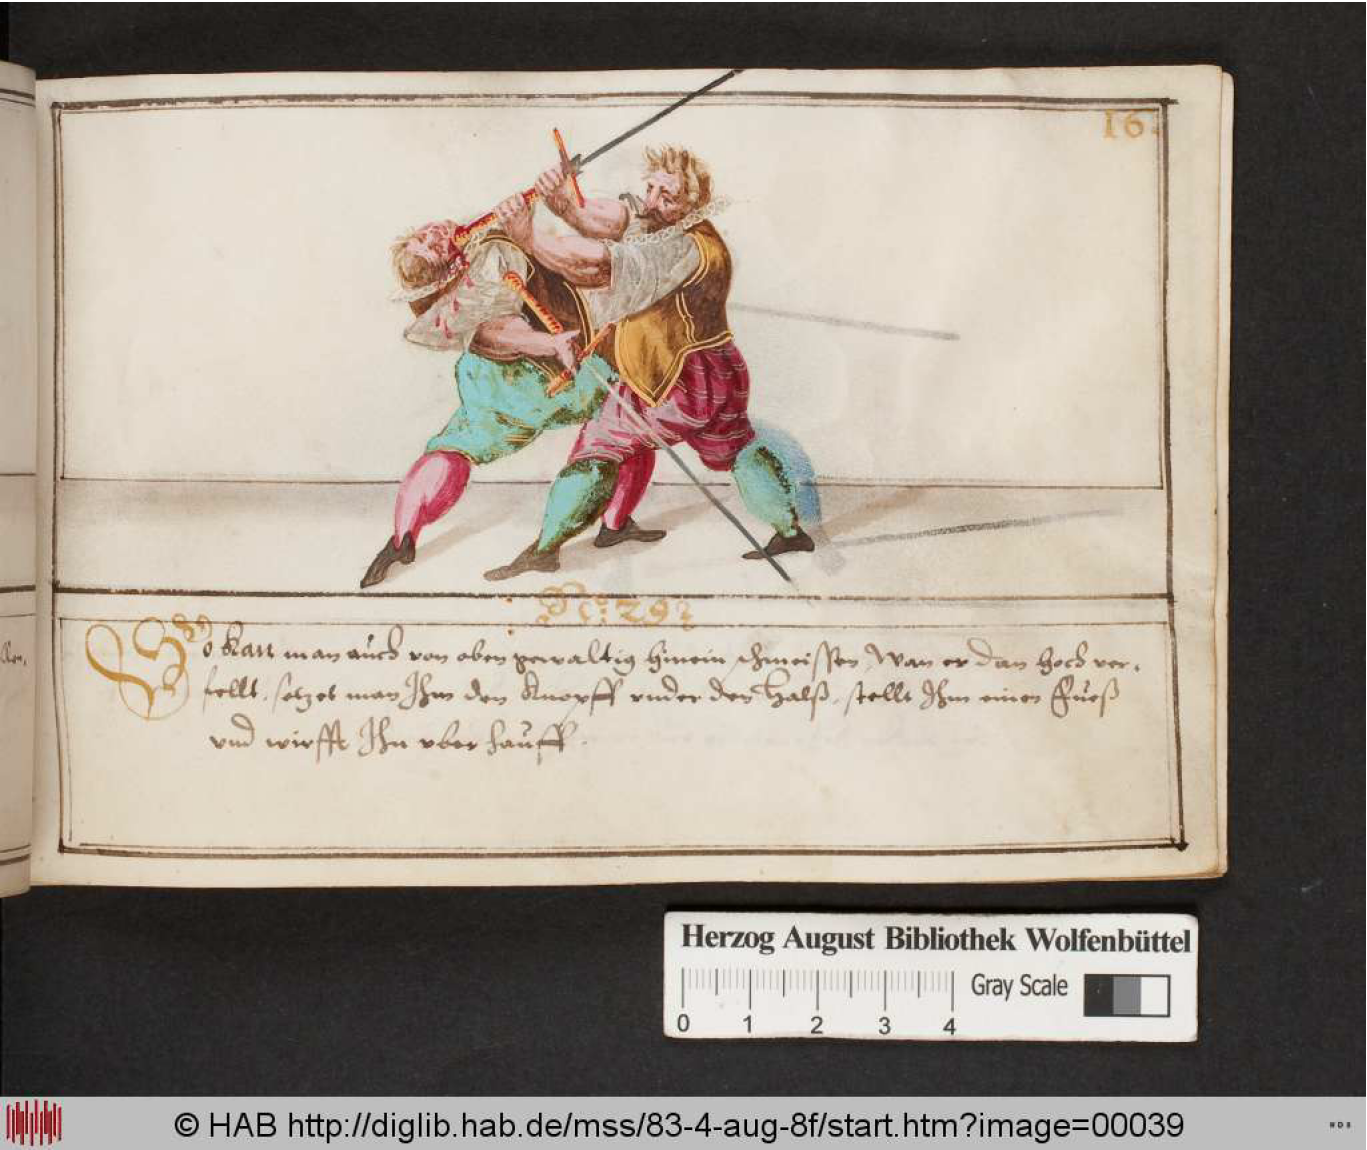 16.
Nº: 29
So kan man auch von oben gewaltig hinein schmeissen, Wan er dan hoch ver-
sellt, setzet man Ihm den Knopff vnder den Halß, stellt Ihm einen Fueß
vnd wirfft Ihn vber hauff.
Herzog August Bibliothek Wolfenbüttel
Gray Scale
0 1 2 3 4
© HAB http://diglib.hab.de/mss/83-4-aug-8f/start.htm?image=00039